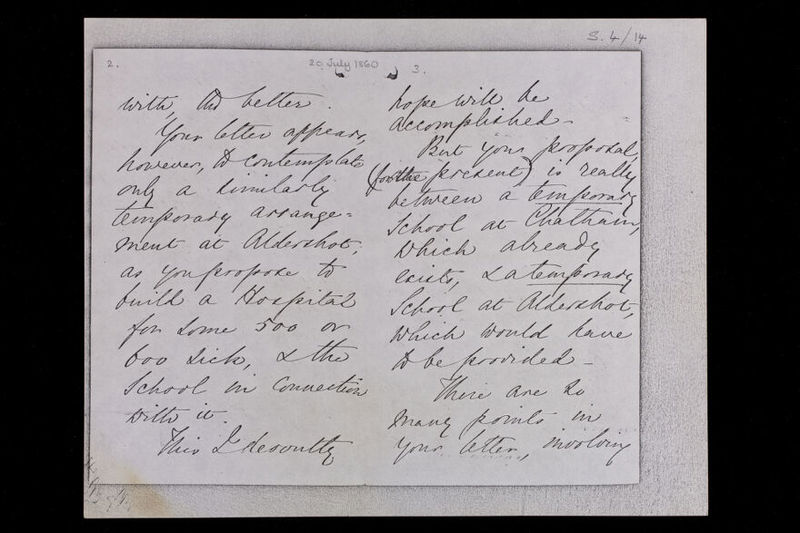 S. 4/14
2.
20 July 1860
with, the better.
Your letter appears,
however, to contemplate
only a similarly
temporary arrange=
ment at Aldershot,
as you propose to
build a Hospital
for some 500 or
600 Sick, & the
School in connection
with it.
This I devoutly
3.
hope will be
accomplished -
But your proposal,
(for the present) is really
between a temporary
School at Chatham,
which already
exists, & a temporary
School at Aldershot,
which would have
to be provided -
There are so
many points in
your letter, involving